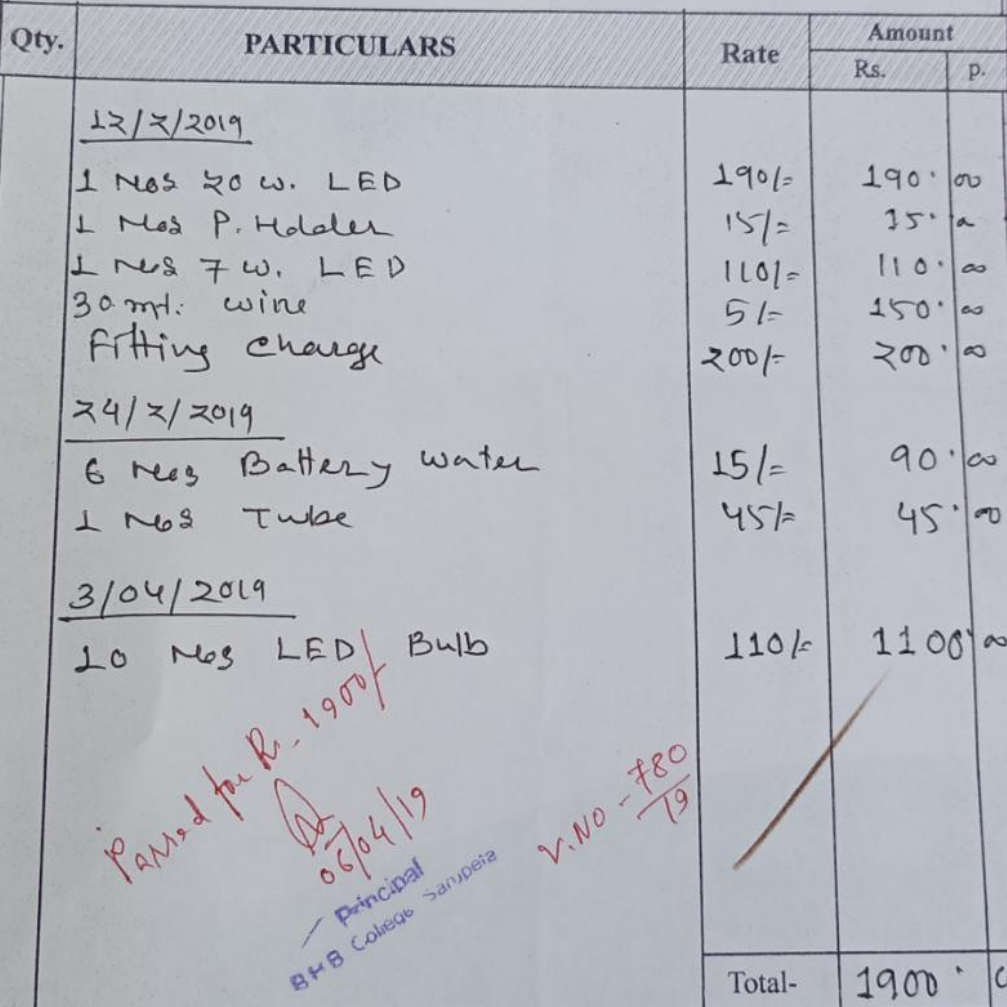 Qty. PARTICULARS Rate Amount
Rs. p.
12/2/2019
1 Nos 20 w. LED 190/= 190.00
1 Nos P. Holder 15/= 15.00
1 Nos 7 w. LED 110/= 110.00
30 mt. wire 5/= 150.00
Fitting charge 200/= 200.00
24/2/2019
6 Nos Battery water 15/= 90.00
1 Nos Tube 45/= 45.00
3/04/2019
10 Nos LED Bulb 110/= 1100.00
Passed for Rs. 1900/-
06/04/19
V.NO - 780/19
Principal
BHB College Sarupeta
Total- 1900.